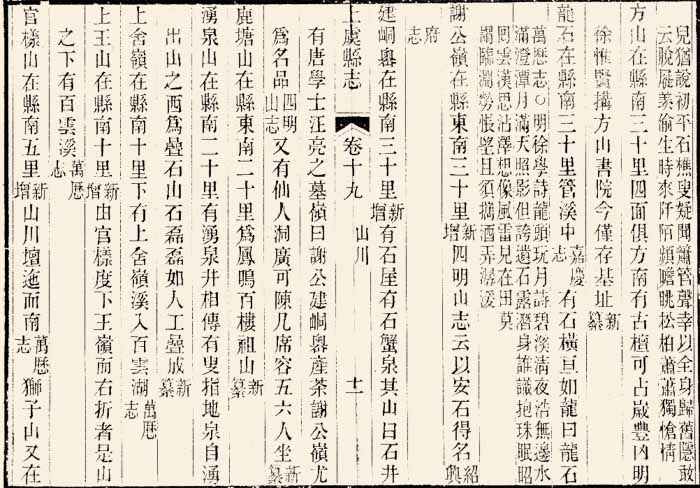 兒猶說初平石樵叟疑聞簫管聲幸以全身歸舊隱敢
云脫屣羨偷生時來阡陌頻瞻眺松柏蕭蕭獨愴情
方山在縣南三十里四面俱方南有古檀可占嵗豐凶明
徐惟賢搆方山書院今僅存基址新纂
龍石在縣南三十里管溪中嘉慶志有石橫亘如龍曰龍石
萬歷志○明徐學詩龍頭玩月詩碧溪淸夜浩無邊水
滿澄潭月滿天照影但誇遺石露潛身誰議抱珠眠昭
回雲漢思沾澤想像風雷見在田莫
謂臨淵勞悵望且須攜酒弄潺湲
謝公嶺在縣東南三十里新增四明山志云以安石得名紹興
府志
建峒嶴在縣南三十里新增有石屋有石蟹泉其山曰石井
上虞縣志 卷十九 山川 十一
有唐學士汪亮之墓嶺曰謝公建峒嶴產茶謝公嶺尤
爲名品四明山志又有仙人洞廣可陳几席容五六人坐新纂
鹿塘山在縣東南二十里爲鳳鳴百樓祖山新纂
湧泉山在縣南二十里有湧泉井相傳有叟指地泉自湧
出山之西爲疊石山石磊磊如人工疊成新纂
上舍嶺在縣南十里下有上舍嶺溪入百雲湖萬歷志
之下有百雲溪萬歷志
上王山在縣南十里新增由官樣度下王嶺而右折者是山
官樣山在縣南五里新增山川壇迤而南萬歷志獅子山又在